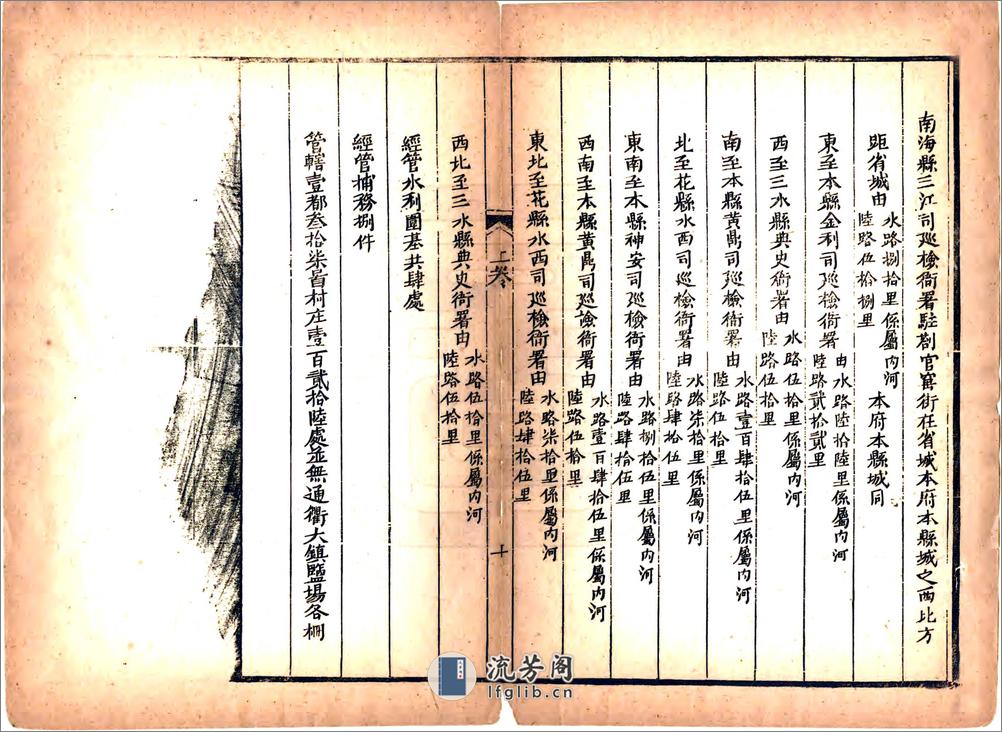 南海縣三江司廵檢衙署駐劄官窰街在省城本府本縣城之西北方
距省城由水路捌拾里係屬內河陸路伍拾捌里本府本縣城同
東至本縣金利司廵檢衙署由水路陸拾陸里係屬內河陸路貳拾貳里
西至三水縣典史衙署由水路伍拾里係屬內河陸路伍拾里
南至本縣黃鼎司廵檢衙署由水路壹百肆拾伍里係屬內河陸路伍拾里
北至花縣水西司廵檢衙署由水路柒拾里係屬內河陸路肆拾伍里
東南至本縣神安司廵檢衙署由水路捌拾伍里係屬內河陸路肆拾伍里
西南至本縣黃鼎司廵檢衙署由水路壹百肆拾伍里係屬內河陸路伍拾里
東北至花縣水西司廵檢衙署由水路柒拾里係屬內河陸路肆拾伍里
上卷
十
西北至三水縣典史衙署由水路伍拾里係屬內河陸路伍拾里
經管水利圍基共肆處
經管捕務捌件
管轄壹都叁拾柒啚村庄壹百貳拾陸處並無通衢大鎮鹽場各柵
流芳阁
lfglib.cn